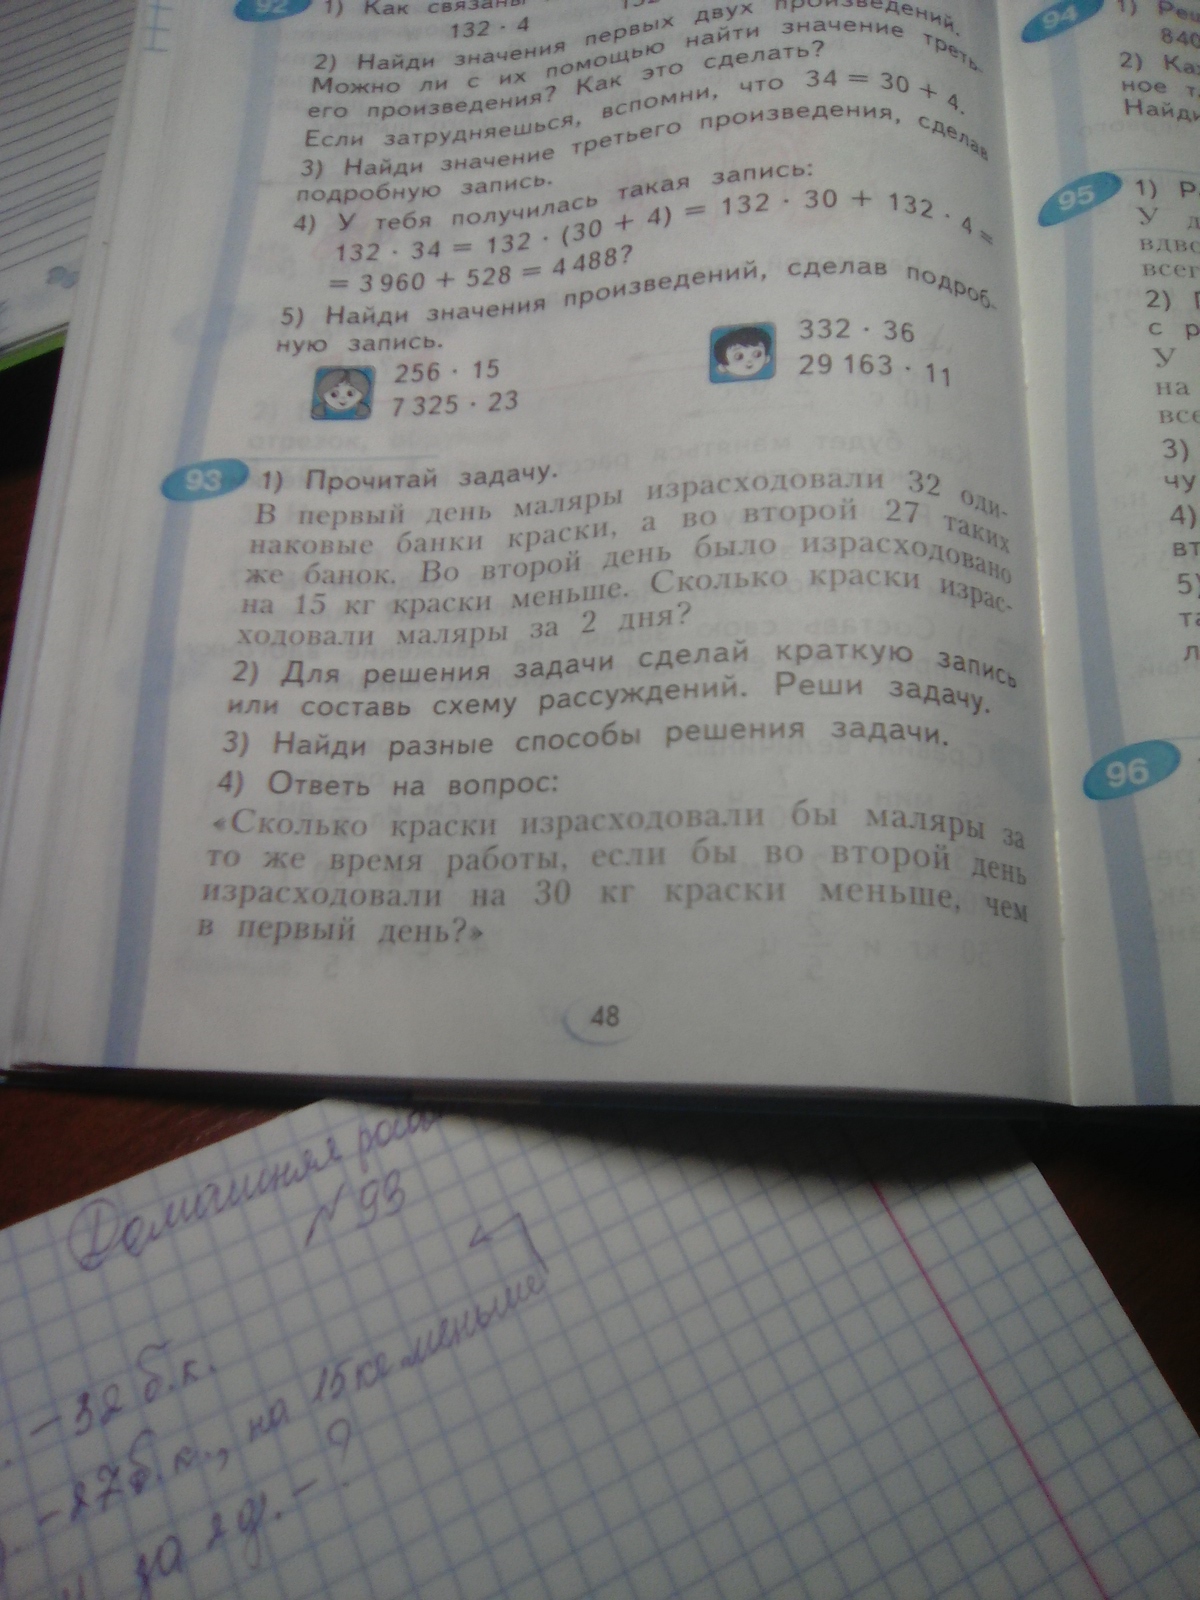 92
1) Как связаны
132 · 4
2) Найди значения первых двух произведений.
Можно ли с их помощью найти значение треть-
его произведения? Как это сделать?
Если затрудняешься, вспомни, что 34 = 30 + 4.
3) Найди значение третьего произведения, сделав
подробную запись.
4) У тебя получилась такая запись:
132 · 34 = 132 · (30 + 4) = 132 · 30 + 132 · 4 =
= 3 960 + 528 = 4 488?
5) Найди значения произведений, сделав подроб-
ную запись.
256 · 15
7 325 · 23
332 · 36
29 163 · 11
93
1) Прочитай задачу.
В первый день маляры израсходовали 32 оди-
наковые банки краски, а во второй 27 таких
же банок. Во второй день было израсходовано
на 15 кг краски меньше. Сколько краски израс-
ходовали маляры за 2 дня?
2) Для решения задачи сделай краткую запись
или составь схему рассуждений. Реши задачу.
3) Найди разные способы решения задачи.
4) Ответь на вопрос:
«Сколько краски израсходовали бы маляры за
то же время работы, если бы во второй день
израсходовали на 30 кг краски меньше, чем
в первый день?»
48
94
1)
840
2)
ное
Найди
95
1)
У
всег
2)
с
У
на
все
3)
чу
4)
вт
5)
та
96
Домашняя
№ 93
– 32 б.к.
– 27 б.к., на 15 кг меньше
за 2 д. – ?